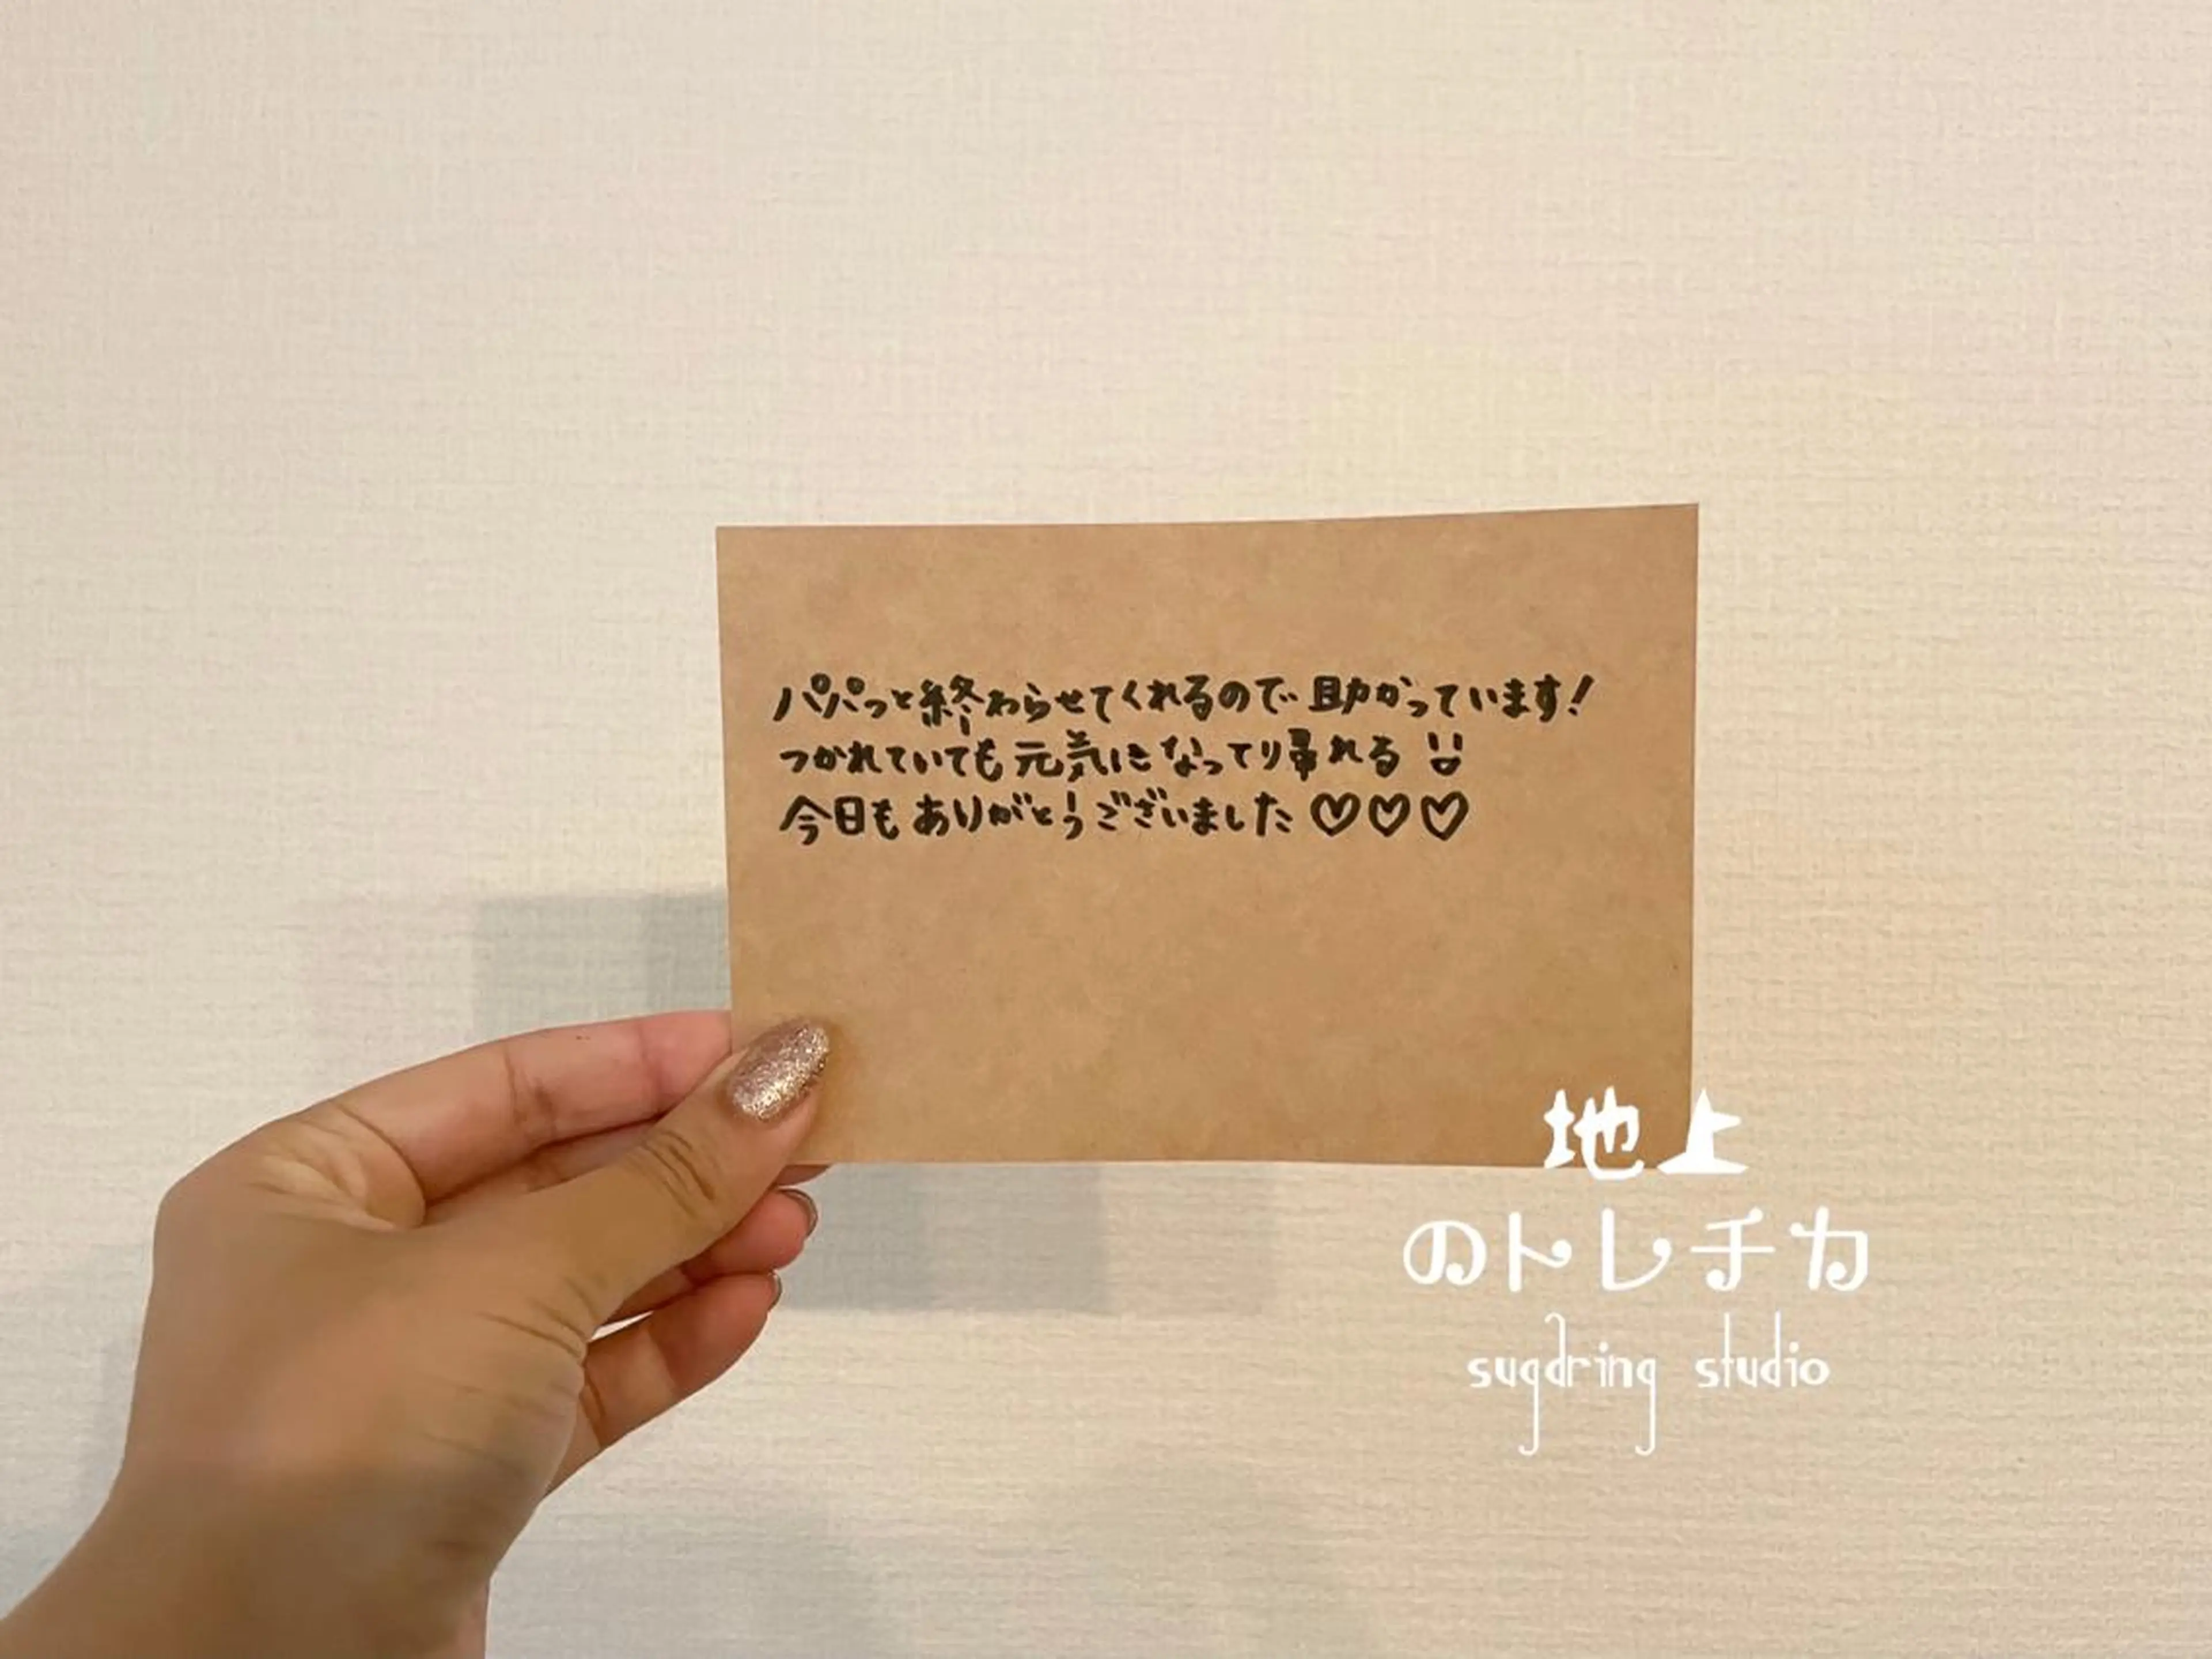 パパっと終わらせてくれるので助かっています!
つかれていても元気になって帰れる
今日もありがとうございました♡♡♡
地上
のトレチカ
sugdring studio